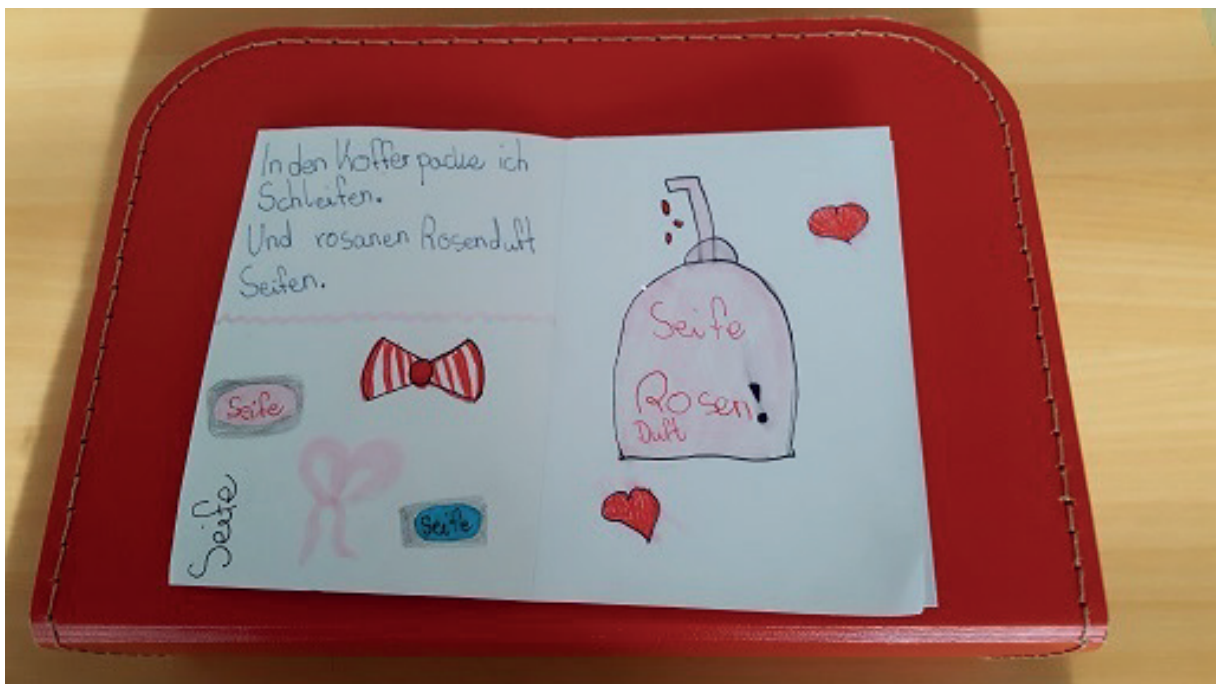 In den Koffer packe ich
Schleifen.
Und rosanen Rosenduft
Seifen.
Seife
Seife
Seife
Seife
Rosen!
Duft